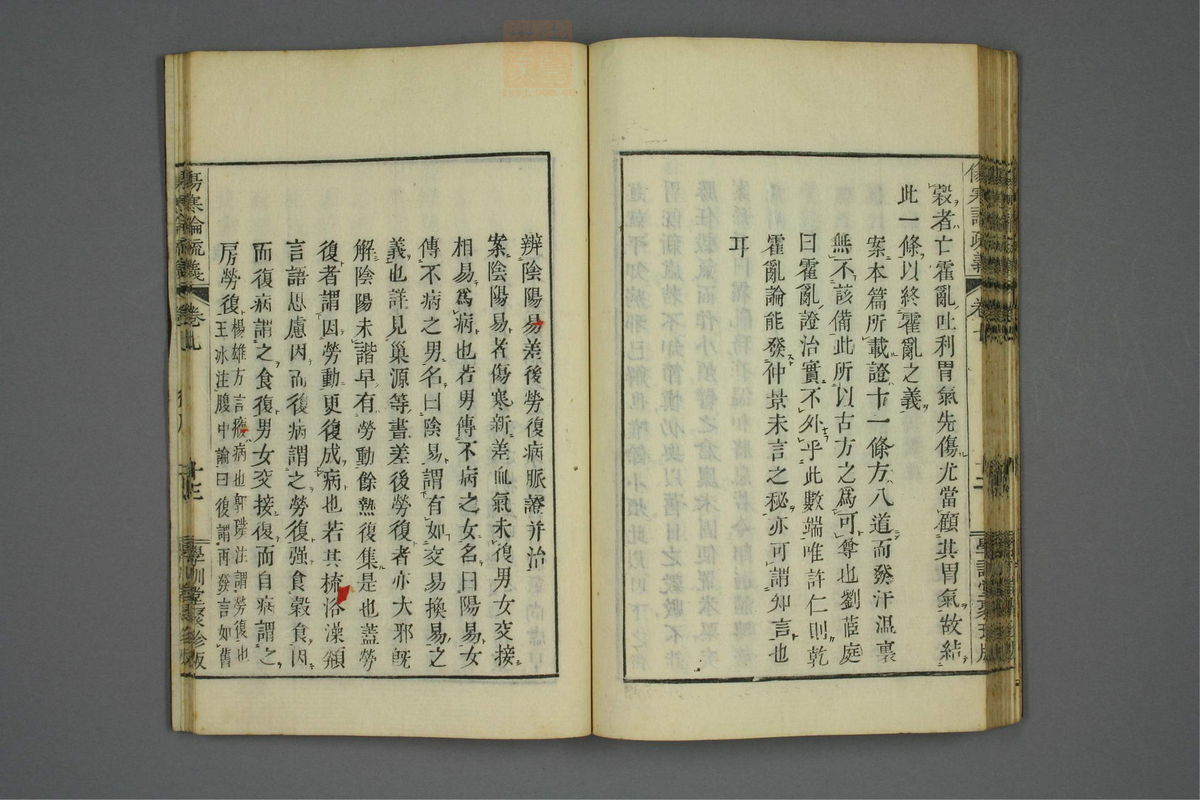 穀者亡霍亂吐利胃氣先傷尤當顧其胃氣故結
此一條以終霍亂之義
案本篇所載證十一條方八道而發汗溫裏
無不該備此所以古方之爲可尊也劉茝庭
曰霍亂證治實不外乎此數端唯許仁則乾
霍亂論能發仲景未言之秘亦可謂知言也
耳
學訓堂聚珍版
辨陰陽易差後勞復病脈證并治
案陰陽易者傷寒新差血氣未復男女交接
相易爲病也若男傳不病之女名曰陽易女
傳不病之男名曰陰易謂有如交易換易之
義也詳見巢源等書差後勞復者亦大邪旣
解陰陽未諧早有勞動餘熱復集是也蓋勞
復者謂因勞動更復成病也若其梳浴澡頮
言語思慮因而復病謂之勞復强食穀食因
而復病謂之食復男女交接復而自病謂之
房勞復
楊雄方言㾱病也郭璞注謂勞復也
王冰注腹中論曰復謂再發言如舊
傷寒論疏義
卷
十三
學訓堂聚珍版